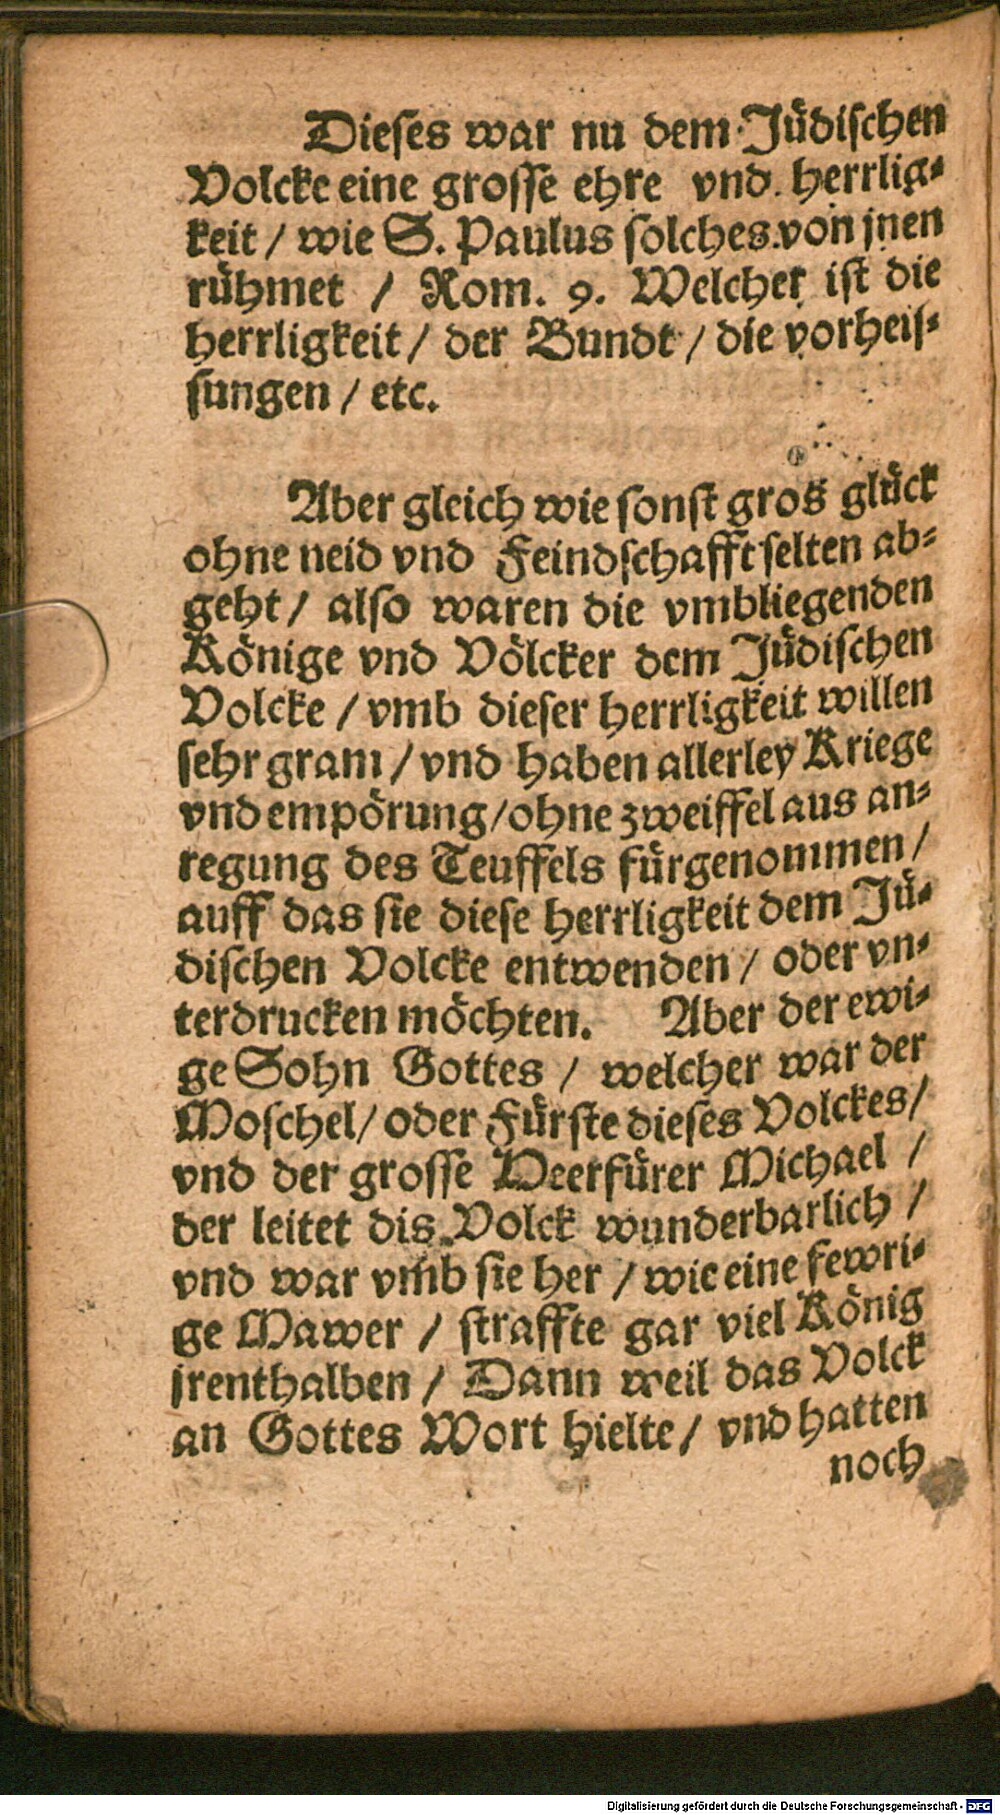 Dieses war nu dem Jüdischen
Volcke eine grosse ehre vnd herrlig-
keit / wie S. Paulus solches von jnen
rühmet / Rom. 9. Welcher ist die
herrligkeit / der Bundt / die vorheis-
sungen / etc.
Aber gleich wie sonst gros glück
ohne neid vnd Feindschafft selten ab-
geht / also waren die vmbliegenden
Könige vnd Völcker dem Jüdischen
Volcke / vmb dieser herrligkeit willen
sehr gram / vnd haben allerley Kriege
vnd empörung / ohne zweiffel aus an-
regung des Teuffels fürgenommen /
auff das sie diese herrligkeit dem Jü-
dischen Volcke entwenden / oder vn-
terdrucken möchten. Aber der ewi-
ge Sohn Gottes / welcher war der
Moschel / oder Fürste dieses Volckes /
vnd der grosse Heerfürer Michael /
der leitet dis Volck wunderbarlich /
vnd war vmb sie her / wie eine fewri-
ge Mawer / straffte gar viel König
jrenthalben / Dann weil das Volck
an Gottes Wort hielte / vnd hatten
noch
Digitalisierung gefördert durch die Deutsche Forschungsgemeinschaft - DFG